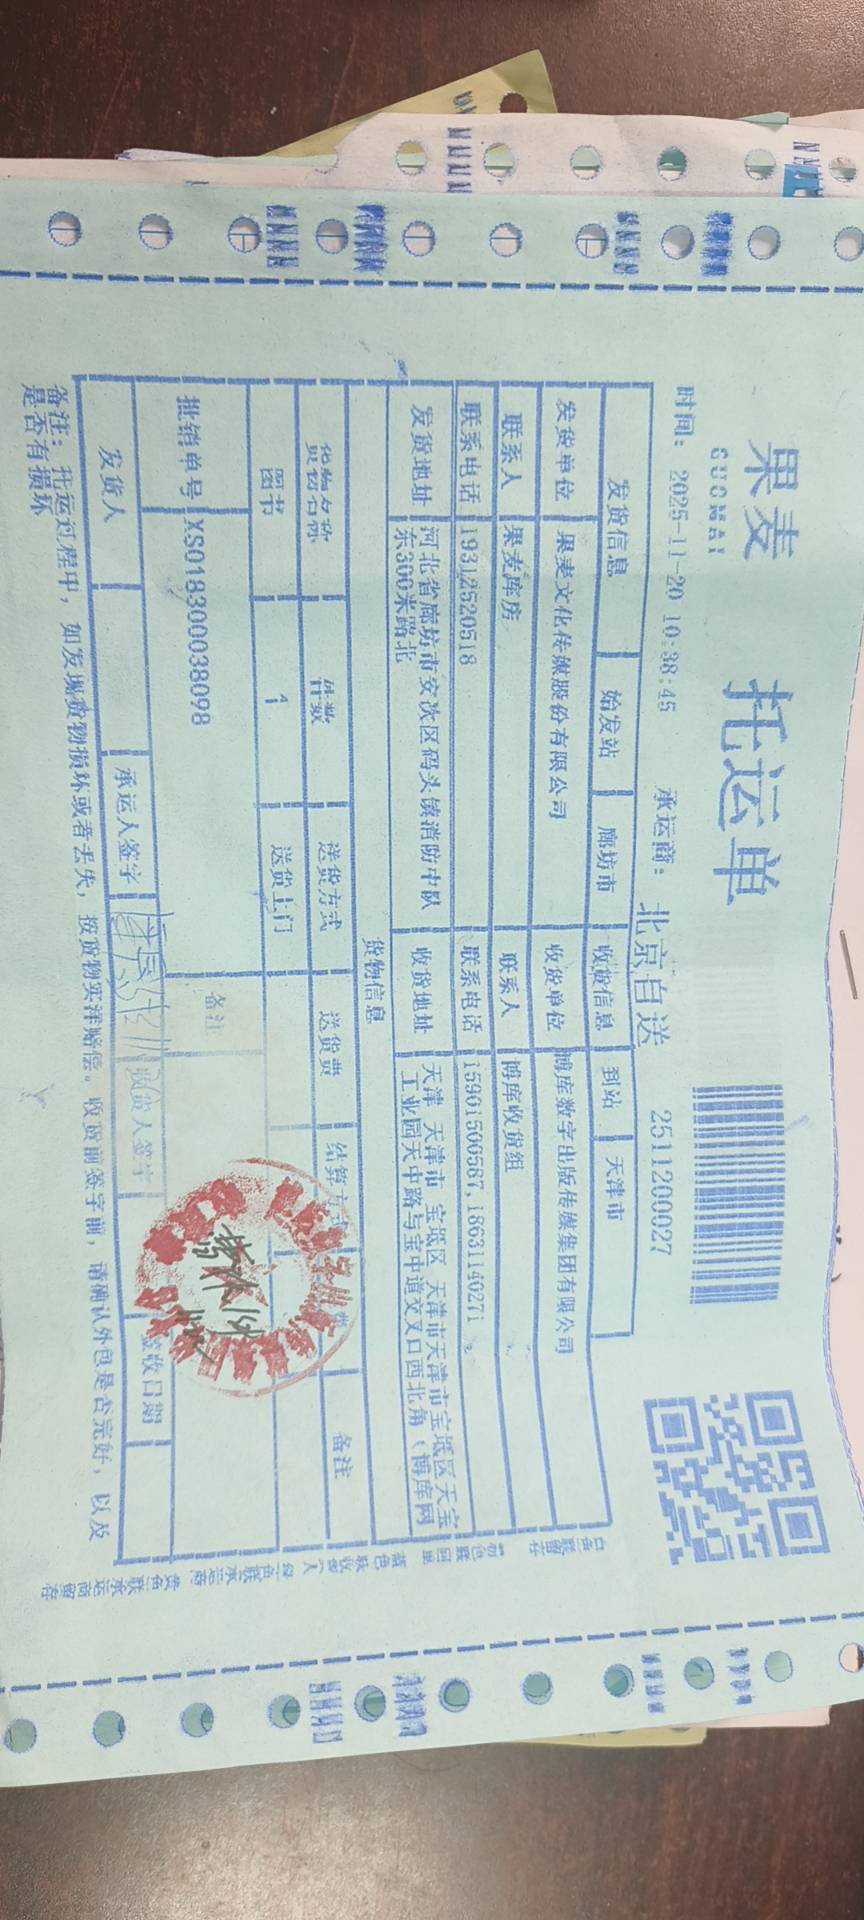 果麦
GUOMAI
托运单
时间: 2025-11-20 10:38:45 承运商: 北京自送 2511200027
发货信息 始发站 廊坊市 收货信息 到站 天津市
发货单位 果麦文化传媒股份有限公司 收货单位 博库数字出版传媒集团有限公司
联系人 果麦库房 联系人 博库收货组
联系电话 19312520518 联系电话 15901500587,18631140271
发货地址 河北省廊坊市安次区码头镇消防中队 收货地址 天津 天津市 宝坻区 天津市天津市宝坻区天宝
东300米路北 工业园天中路与宝中道交叉口西北角(博库网
货物信息
货物名称 件数 送货方式 送货费 结算方式 备注
图书 1 送货上门
批销单号 XS018300038098 备注
发货人 承运人签字 收货人签字 签收日期
备注: 托运过程中, 如发现货物损坏或者丢失, 按货物实洋赔偿。收货前签字前, 请确认外包是否完好, 以及
是否有损坏
白色联留存
蓝色联收货人
黄色联承运商留存